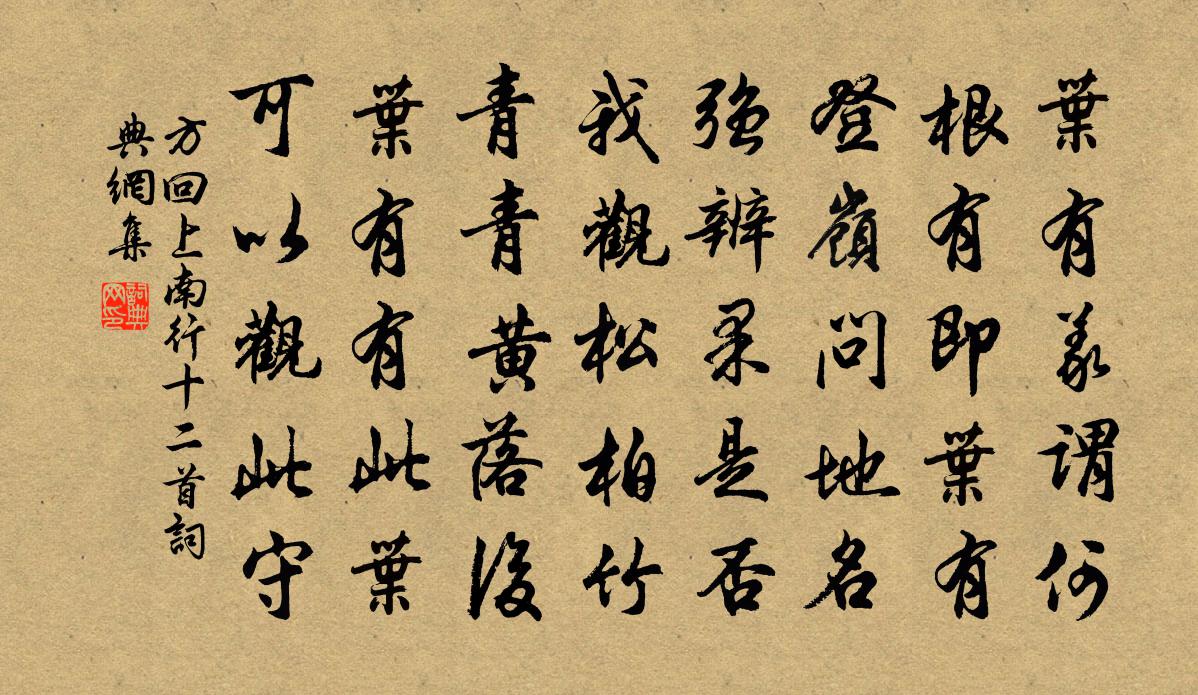 葉有義謂何
根有即葉有
登嶺問地名
強辨果是否
我觀松柏竹
青青黃落後
葉有有此葉
可以觀此守
方回上南行十二首詞
典網集
詞典網印